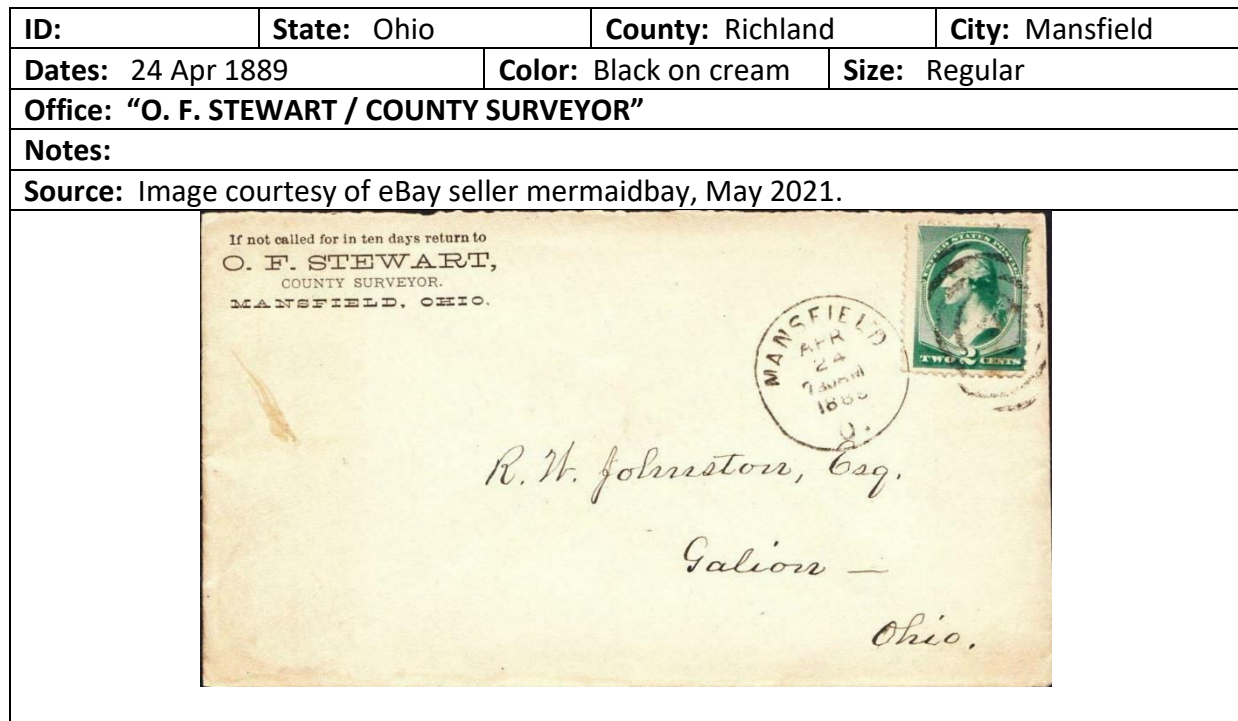 ID: State: Ohio County: Richland City: Mansfield
Dates: 24 Apr 1889 Color: Black on cream Size: Regular
Office: "O. F. STEWART / COUNTY SURVEYOR"
Notes:
Source: Image courtesy of eBay seller mermaidbay, May 2021.
If not called for in ten days return to
O. F. STEWART,
COUNTY SURVEYOR.
MANSFIELD, OHIO.
UNITED STATES POSTAGE
TWO 2 CENTS
MANSFIELD
APR
24
O.
R. W. Johnston, Esq.
Galion —
Ohio.